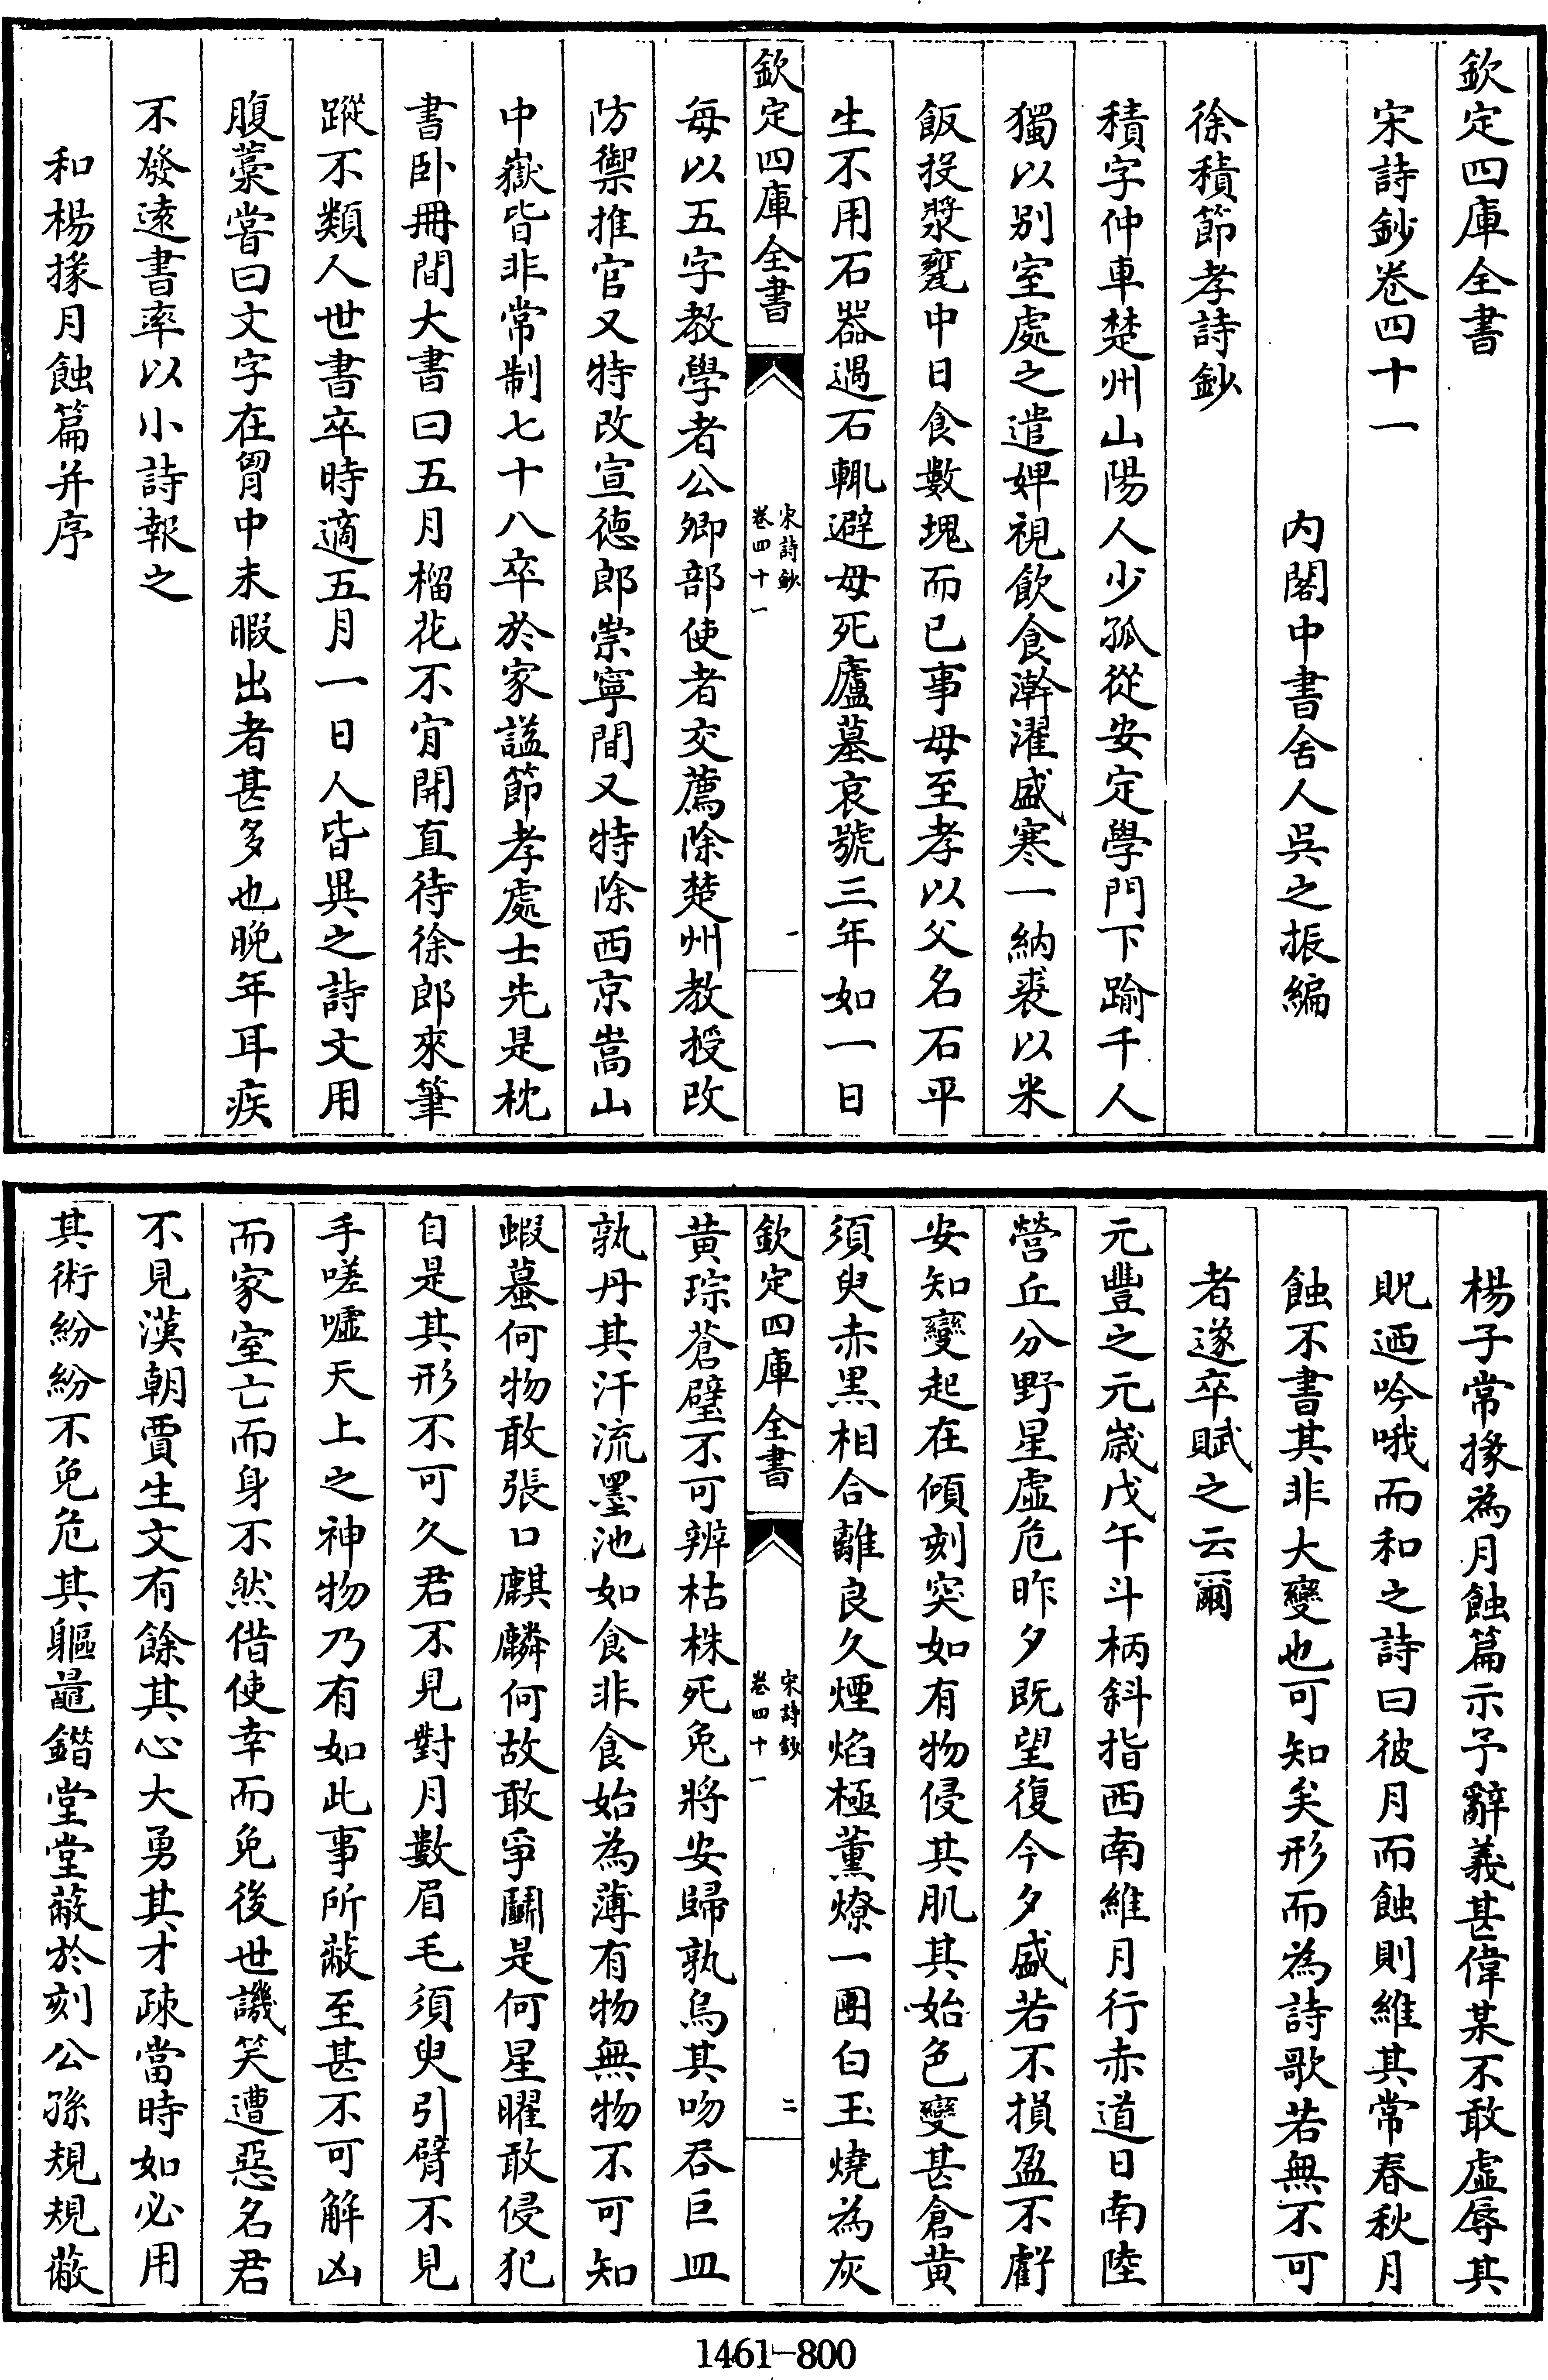 欽定四庫全書
宋詩鈔卷四十一
內閣中書舍人吳之振編
徐積節孝詩鈔
積字仲車楚州山陽人少孤從安定學門下踰千人
獨以别室處之遣婢視飲食澣濯盛寒一納裘以米
飯投漿甕中日食數塊而已事母至孝以父名石平
生不用石器遇石輒避母死廬墓哀號三年如一日
欽定四庫全書
宋詩鈔
卷四十一
一
每以五字教學者公卿部使者交薦除楚州教授改
防禦推官又特改宣德郎崇寧間又特除西京嵩山
中嶽皆非常制七十八卒於家諡節孝處士先是枕
書卧冊間大書曰五月榴花不肯開直待徐郎來筆
蹤不類人世書卒時適五月一日人皆異之詩文用
腹藁嘗曰文字在胷中未暇出者甚多也晚年耳疾
不發遠書率以小詩報之
和楊掾月蝕篇并序
楊子常掾為月蝕篇示予辭義甚偉某不敢虛辱其
貺迺吟哦而和之詩曰彼月而蝕則維其常春秋月
蝕不書其非大變也可知矣形而為詩歌若無不可
者遂卒賦之云爾
元豐之元歲戊午斗柄斜指西南維月行赤道日南陸
營丘分野星虛危昨夕既望復今夕盛若不損盈不虧
安知變起在傾刻突如有物侵其肌其始色變甚倉黄
須臾赤黑相合離良久煙焰極薰燎一團白玉燒為灰
欽定四庫全書
宋詩鈔
卷四十一
二
黄琮蒼璧不可辨枯株死兔將安歸孰烏其吻吞巨皿
孰丹其汗流墨池如食非食始為薄有物無物不可知
蝦蟇何物敢張口麒麟何故敢爭鬬是何星曜敢侵犯
自是其形不可久君不見對月數眉毛須臾引臂不見
手嗟嘘天上之神物乃有如此事所蔽至甚不可解凶
而家室亡而身不然借使幸而免後世譏笑遭惡名君
不見漢朝賈生文有餘其心大勇其才疎當時如必用
其術紛紛不免危其軀鼂錯堂堂蔽於刻公孫規規蔽
1461-800